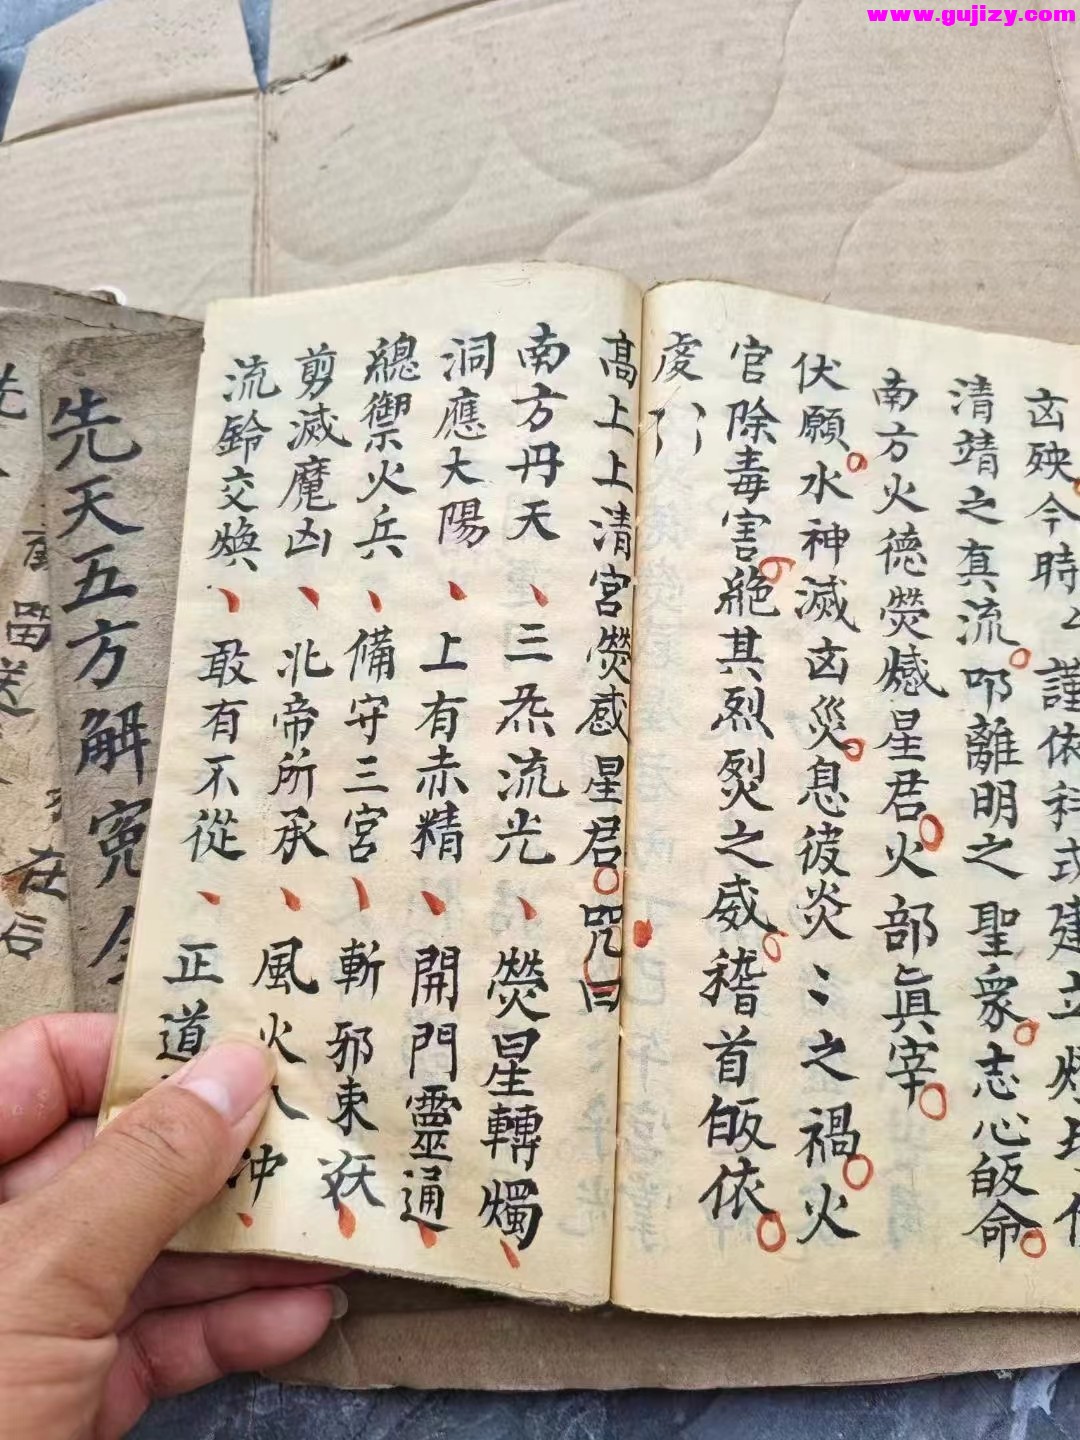 www.gujizy.com
凶殃今時〻謹依科式建立
清靖之真流叩離明之聖衆志心皈命
南方火德熒憾星君火部眞宰
伏願水神滅凶災息彼炎〻之禍火
官除毒害絶其烈烈之威稽首皈依
虔
高上上清宮熒惑星君咒曰
南方丹天三炁流光熒星轉燭
洞應大陽上有赤精開門靈通
總御火兵備守三宮斬邪束妖
剪滅魔凶北帝所承風火
流鈴交煥敢有不從正道
先天五方解冤